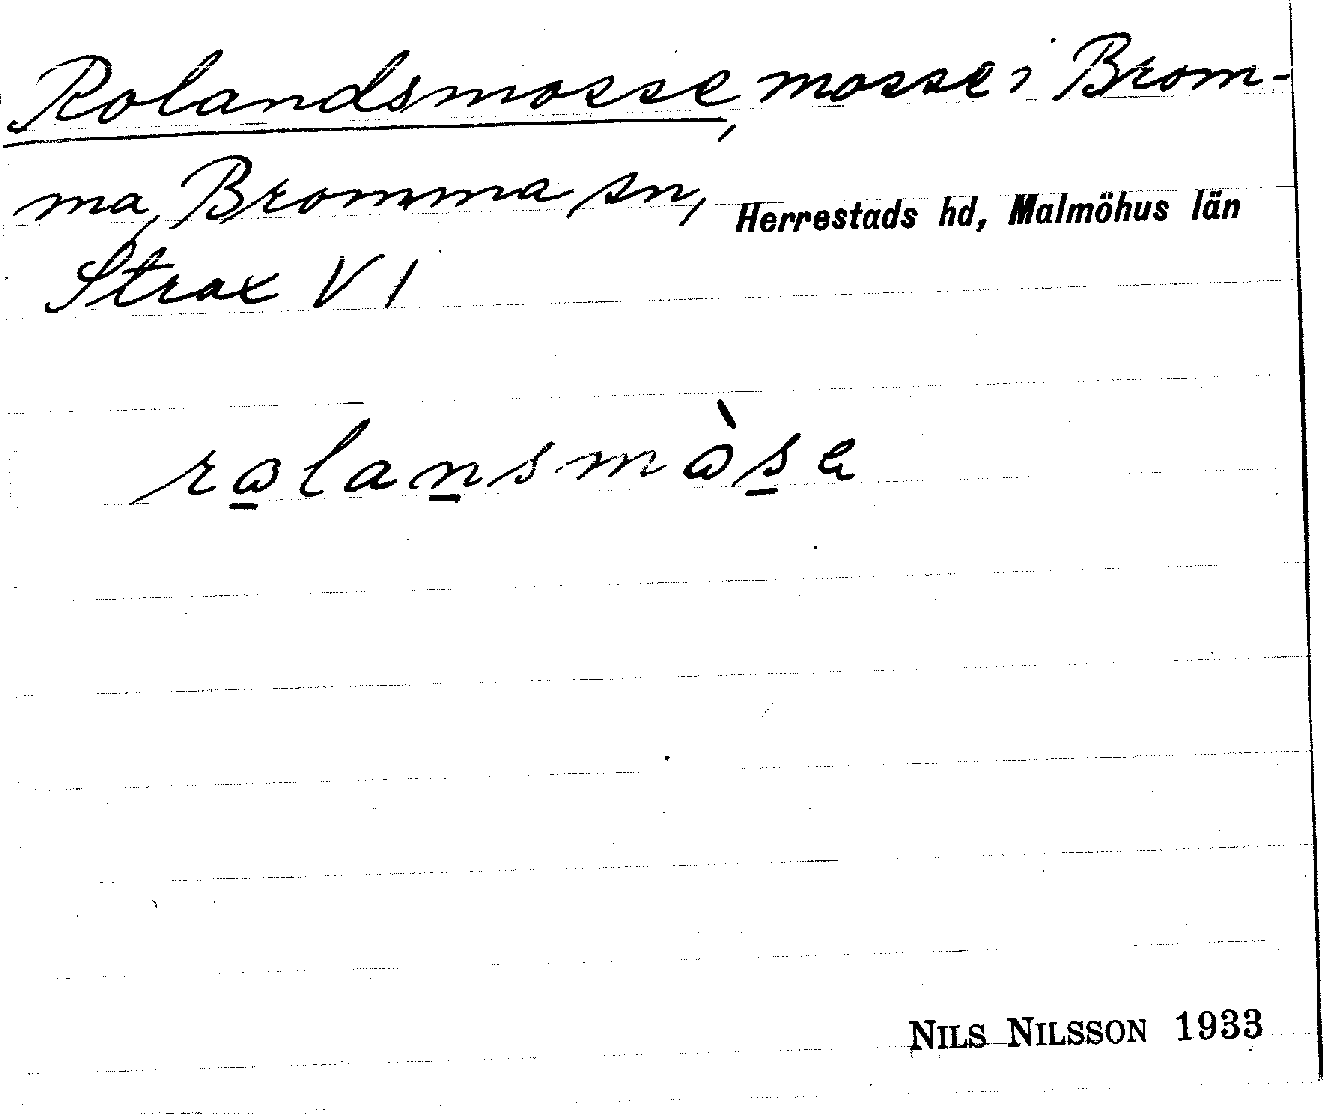 Rolandsmosse, mosse i Brom-
ma, Bromma sn, Herrestads hd, Malmöhus län
Strax V 1
rolansmòsе
NILS NILSSON 1933